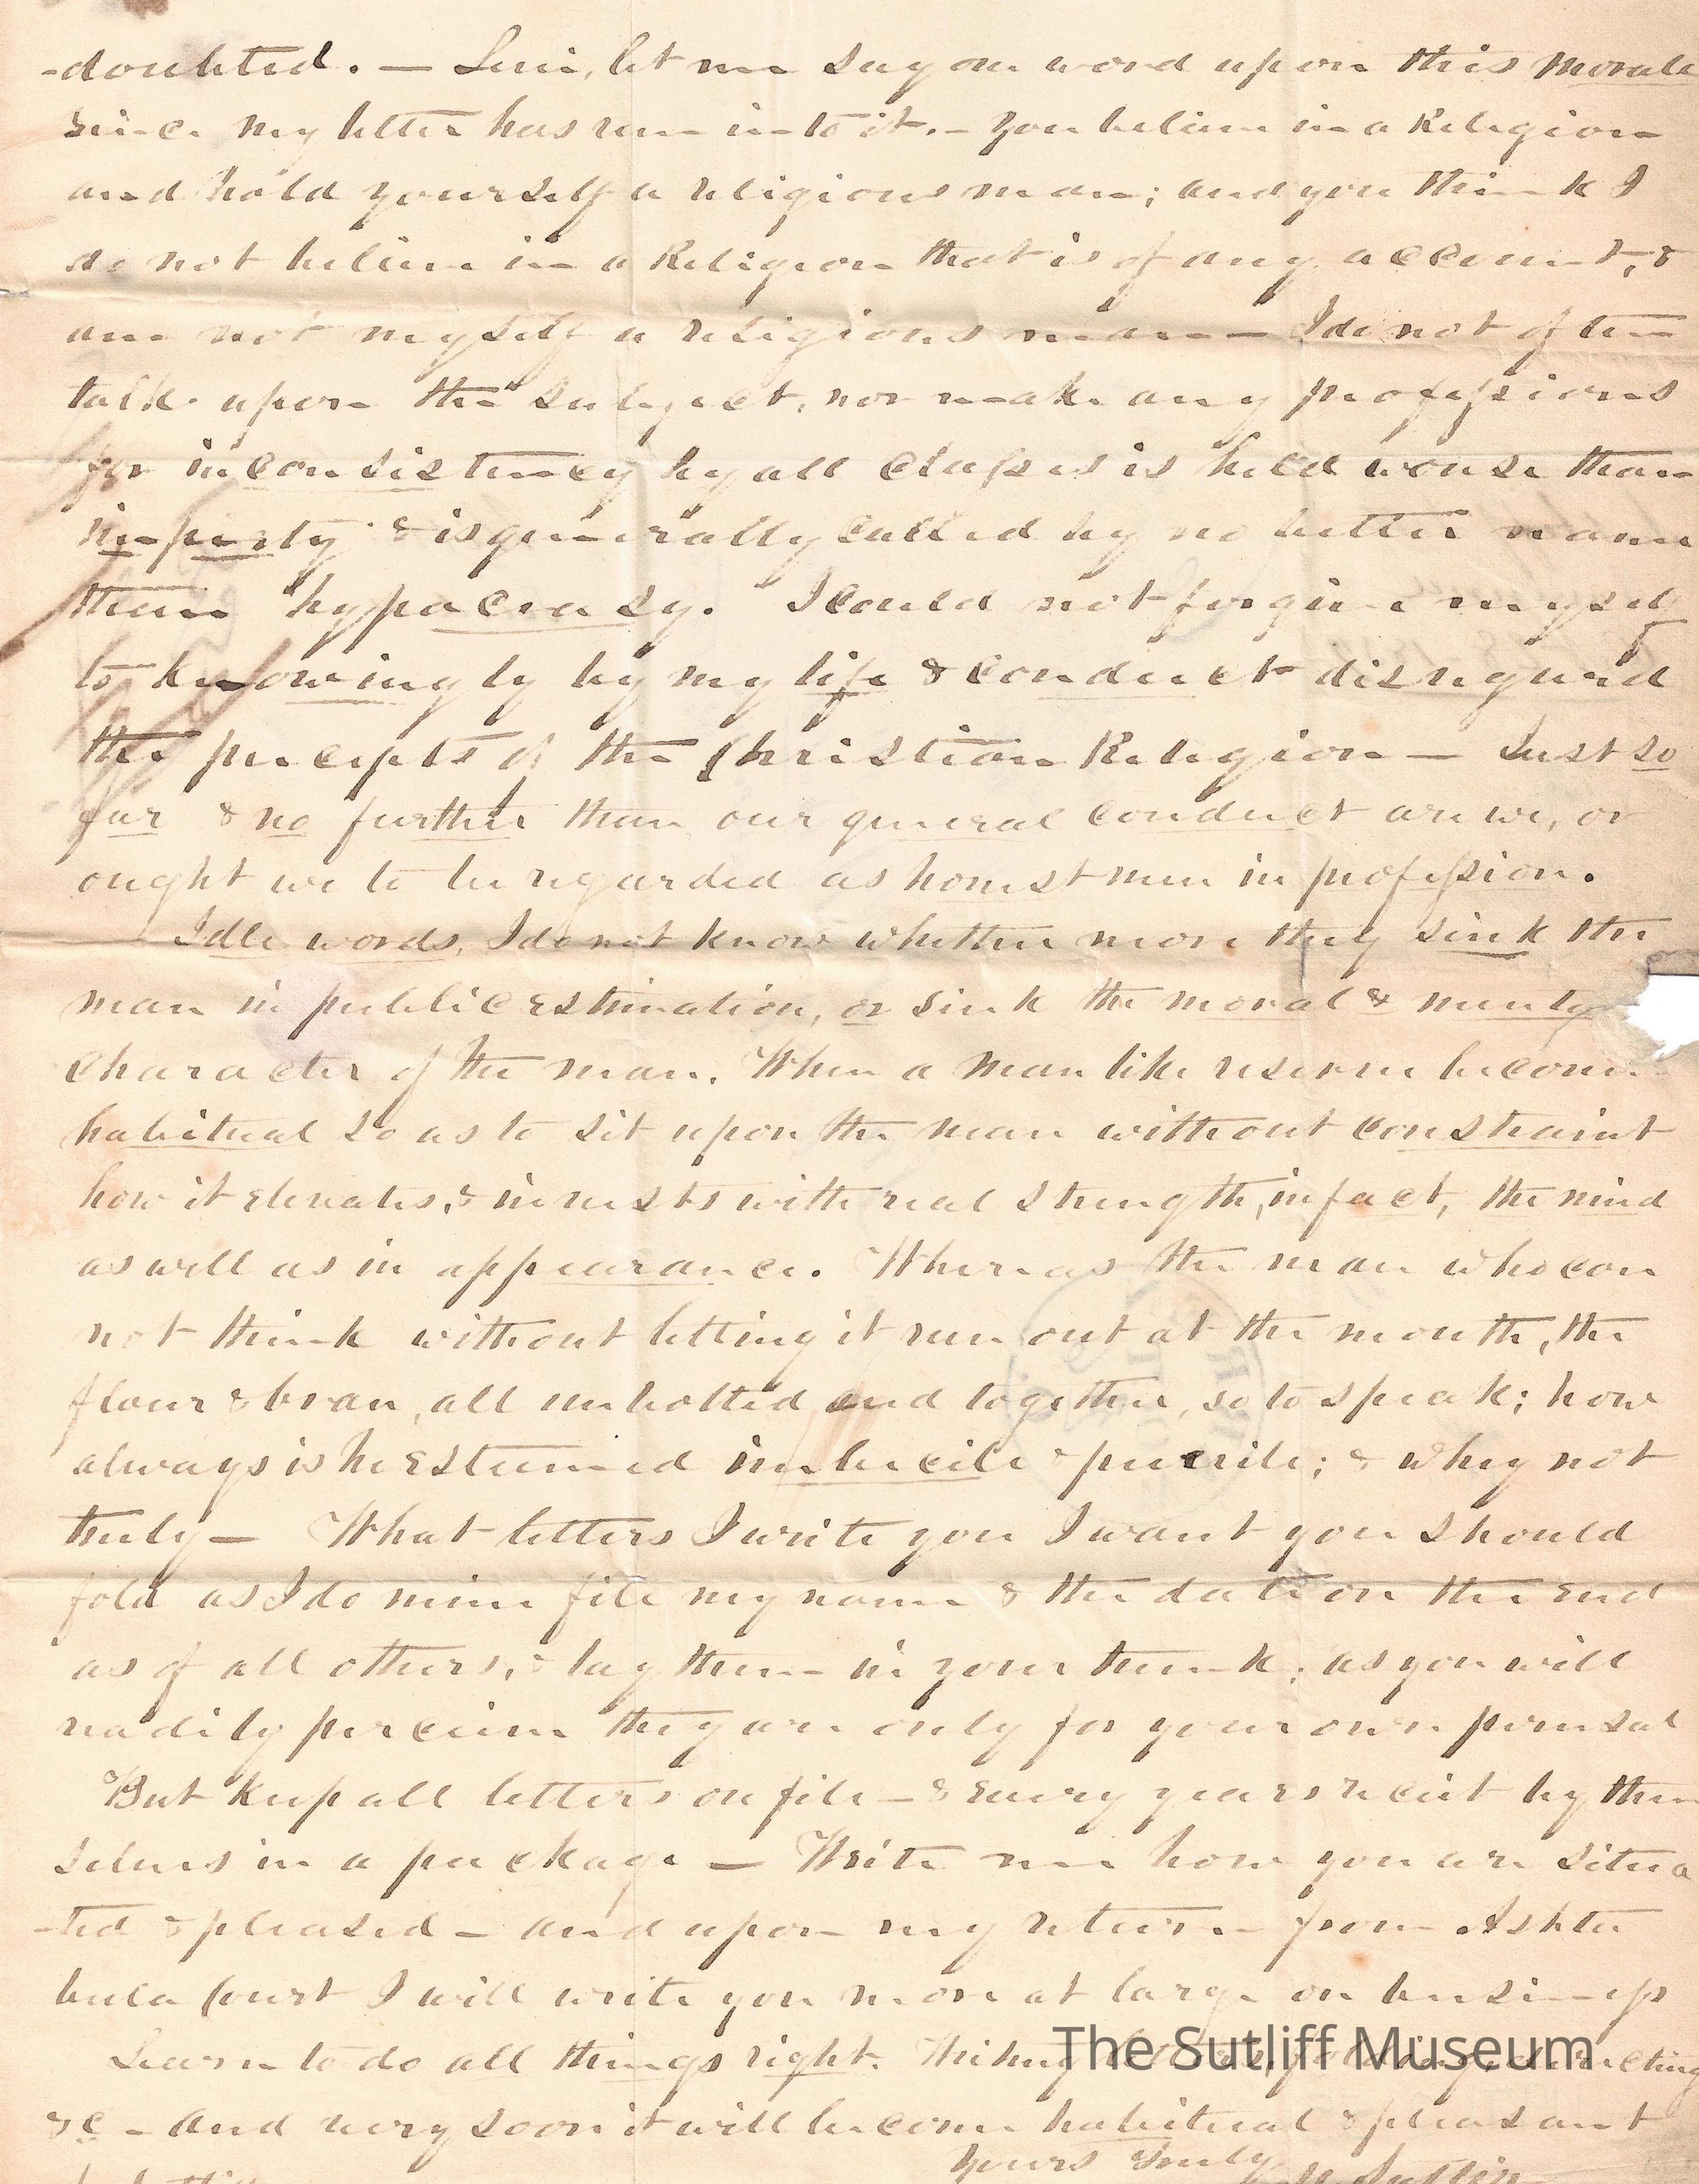 -doubted. — Levi, let me say one word upon this morale
since my letter has run into it. — You believe in a Religion
and hold yourself a religious man; and you think I
do not believe in a Religion that is of any account, &
am not myself a religious man — I do not often
talk upon the subject, nor make any professions
for inconsistency by all classes is held worse than
impurity & is generally called by no better name
than hypocracy. I could not forgive myself
to knowingly by my life & conduct disregard
the precepts of the Christian Religion — Just so
far & no further than our general conduct are we, or
ought we to be regarded as honest men in profession.
Idle words, I do not know whether more they sink the
man in public estimation, or sink the moral &
character of the man. When a man like reserve become
habitual so as to sit upon the man without constraint
how it elevates, & invests with real strength, in fact, the mind
as well as in appearance. Whereas the man who can
not think without letting it run out at the mouth, the
flour & bran, all unbolted and together, so to speak; how
always is he esteemed imbecile & puerile; & why not
truly — What letters I write you I want you should
fold as I do mine file my name & the date on the end
as of all others, & lay them in your trunk; as you will
readily perceive they are only for your own perusal
But keep all letters on file — & every years receit by them
selves in a package — Write me how you are situa
-ted & pleased — and upon my return from Ashta
bula Court I will write you more at large on business
Learn to do all things right.
&c — And very soon it will become habitual & pleasant
Yours truly
The Sutliff Museum